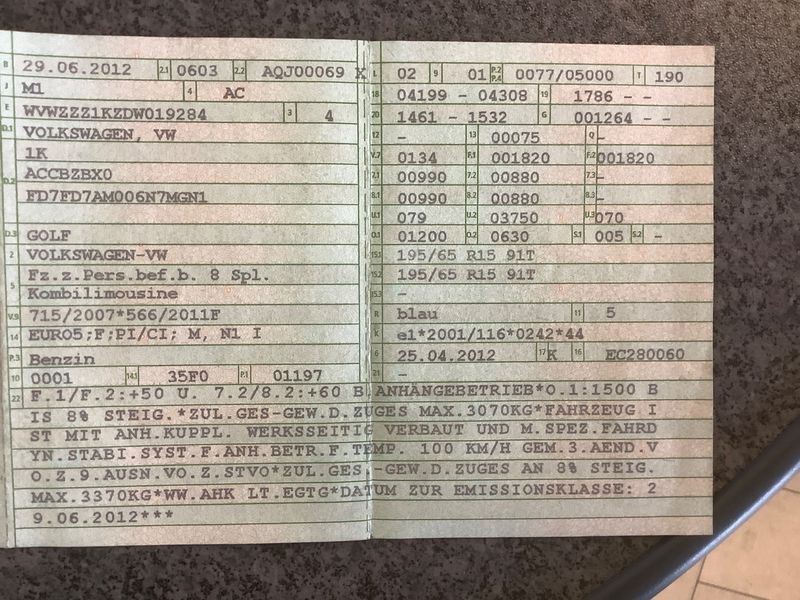 B 29.06.2012 2.1 0603 2.2 AQJ00069 X
J M1 4 AC
E WVWZZZ1KZDW019284 3 4
D.1 VOLKSWAGEN, VW
1K
D.2 ACCBZBX0
FD7FD7AM006N7MGN1
D.3 GOLF
2 VOLKSWAGEN-VW
5 Fz.z.Pers.bef.b. 8 Spl.
Kombilimousine
V.9 715/2007*566/2011F
14 EURO5;F;PI/CI; M, N1 I
P.3 Benzin
10 0001 14.1 35F0 P.1 01197
L 02 9 01 P.2 P.4 0077/05000 T 190
18 04199 - 04308 19 1786 - -
20 1461 - 1532 G 001264 - -
12 - 13 00075 Q -
V.7 0134 F.1 001820 F.2 001820
7.1 00990 7.2 00880 7.3 -
8.1 00990 8.2 00880 8.3 -
U.1 079 U.2 03750 U.3 070
O.1 01200 O.2 0630 S.1 005 S.2 -
15.1 195/65 R15 91T
15.2 195/65 R15 91T
15.3 -
R blau 11 5
K e1*2001/116*0242*44
6 25.04.2012 17 K 16 EC280060
21 -
22 F.1/F.2:+50 U. 7.2/8.2:+60 B ANHÄNGEBETRIEB*O.1:1500 B
IS 8% STEIG.*ZUL.GES-GEW.D.ZUGES MAX.3070KG*FAHRZEUG I
ST MIT ANH.KUPPL. WERKSSEITIG VERBAUT UND M.SPEZ.FAHRD
YN.STABI.SYST.F.ANH.BETR.F.TEMP. 100 KM/H GEM.3.AEND.V
O.Z.9.AUSN.VO.Z.STVO*ZUL.GES-GEW.D.ZUGES AN 8% STEIG.
MAX.3370KG*WW.AHK LT.EGTG*DATUM ZUR EMISSIONSKLASSE: 2
9.06.2012***